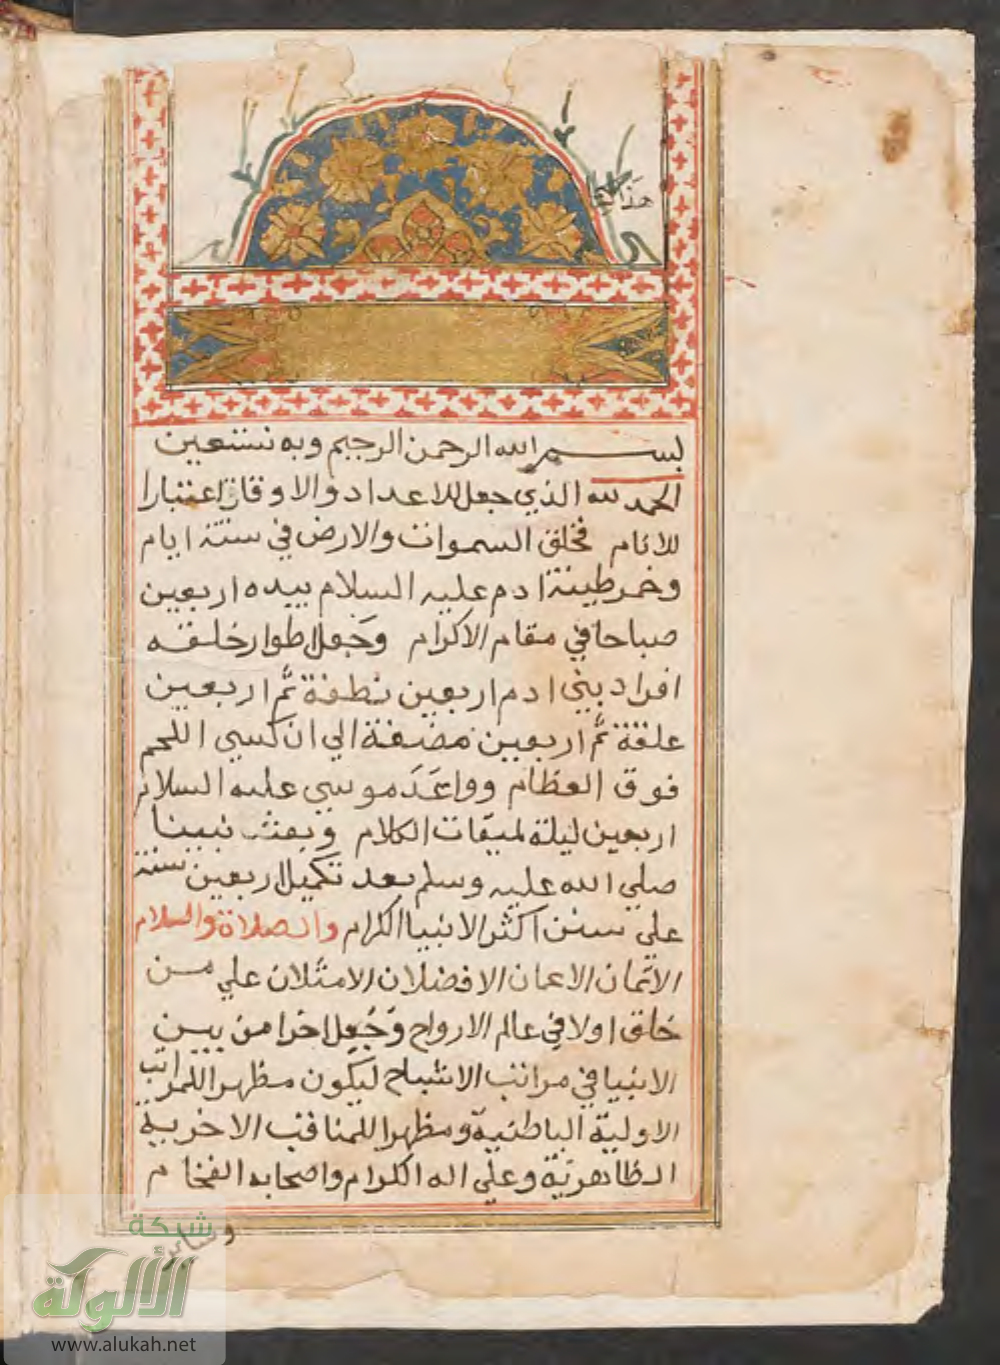 هذا
بسم الله الرحمن الرحيم وبه نستعين
الحمد لله الذي جعل للاعداد والاوقات اعتبارا
للانام فخلق السموات والارض في ستة ايام
وخمر طينة ادم عليه السلام بيده اربعين
صباحا في مقام الاكرام وجعل اطوار خلقه
افراد بني ادم اربعين نطفة ثم اربعين
علقة ثم اربعين مضغة الي ان كسي اللحم
فوق العظام وواعد موسي عليه السلام
اربعين ليلة لميقات الكلام وبعث نبينا
صلي الله عليه وسلم بعد تكميل اربعين سنة
علي سنن اكثر الانبيا الكرام والصلاة والسلام
الاتمان الاعمان الافضلان الامثلان علي من
خلق اولا في عالم الارواح وجعل اخرا من بين
الانبيا في مراتب الاشباح ليكون مظهرا للمراتب
الاولية الباطنية ومظهرا للمناقب الاخرية
الظاهرية وعلي اله الكرام واصحابه الفخام
وساير
شبكة
الألوكة
www.alukah.net